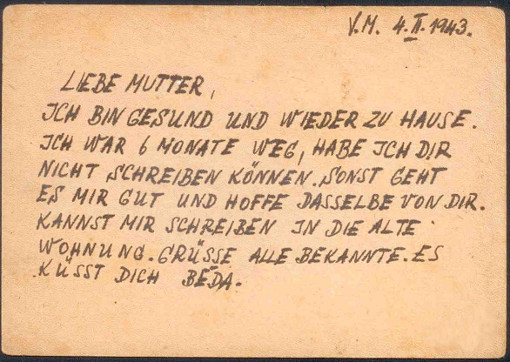 V.M. 4.II.1943.
LIEBE MUTTER,
ICH BIN GESUND UND WIEDER ZU HAUSE.
ICH WAR 6 MONATE WEG, HABE ICH DIR
NICHT SCHREIBEN KÖNNEN. SONST GEHT
ES MIR GUT UND HOFFE DASSELBE VON DIR.
KANNST MIR SCHREIBEN IN DIE ALTE
WOHNUNG. GRÜSSE ALLE BEKANNTE. ES
KÜSST DICH BEDA.